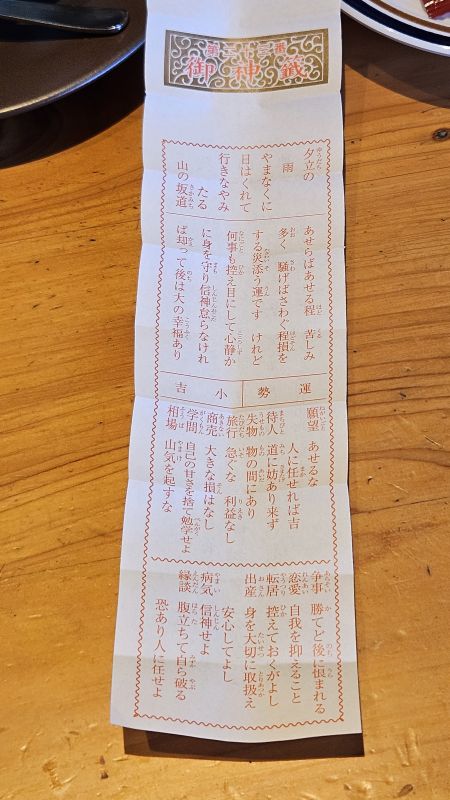 御神籤
夕立の
雨
やまなくに
日はくれて
行きなやみ
たる
山の坂道
あせらばあせる程 苦しみ
多く 騒げばさわぐ程損を
する災添う運です けれど
何事も控え目にして心静か
に身を守り信神怠らなけれ
ば却って後は大の幸福あり
運勢
小吉
願望 あせるな
人に任せれば吉
待人 道に妨あり来ず
失物 物の間にあり
旅行 急ぐな 利益なし
商売 大きな損はなし
学問 自己の甘さを捨て勉学せよ
相場 山気を起すな
争事 勝てど後に恨まれる
恋愛 自我を抑えること
転居 控えておくがよし
出産 身を大切に取扱え
安心してよし
病気 信神せよ
縁談 腹立ちて自ら破る
恐あり人に任せよ